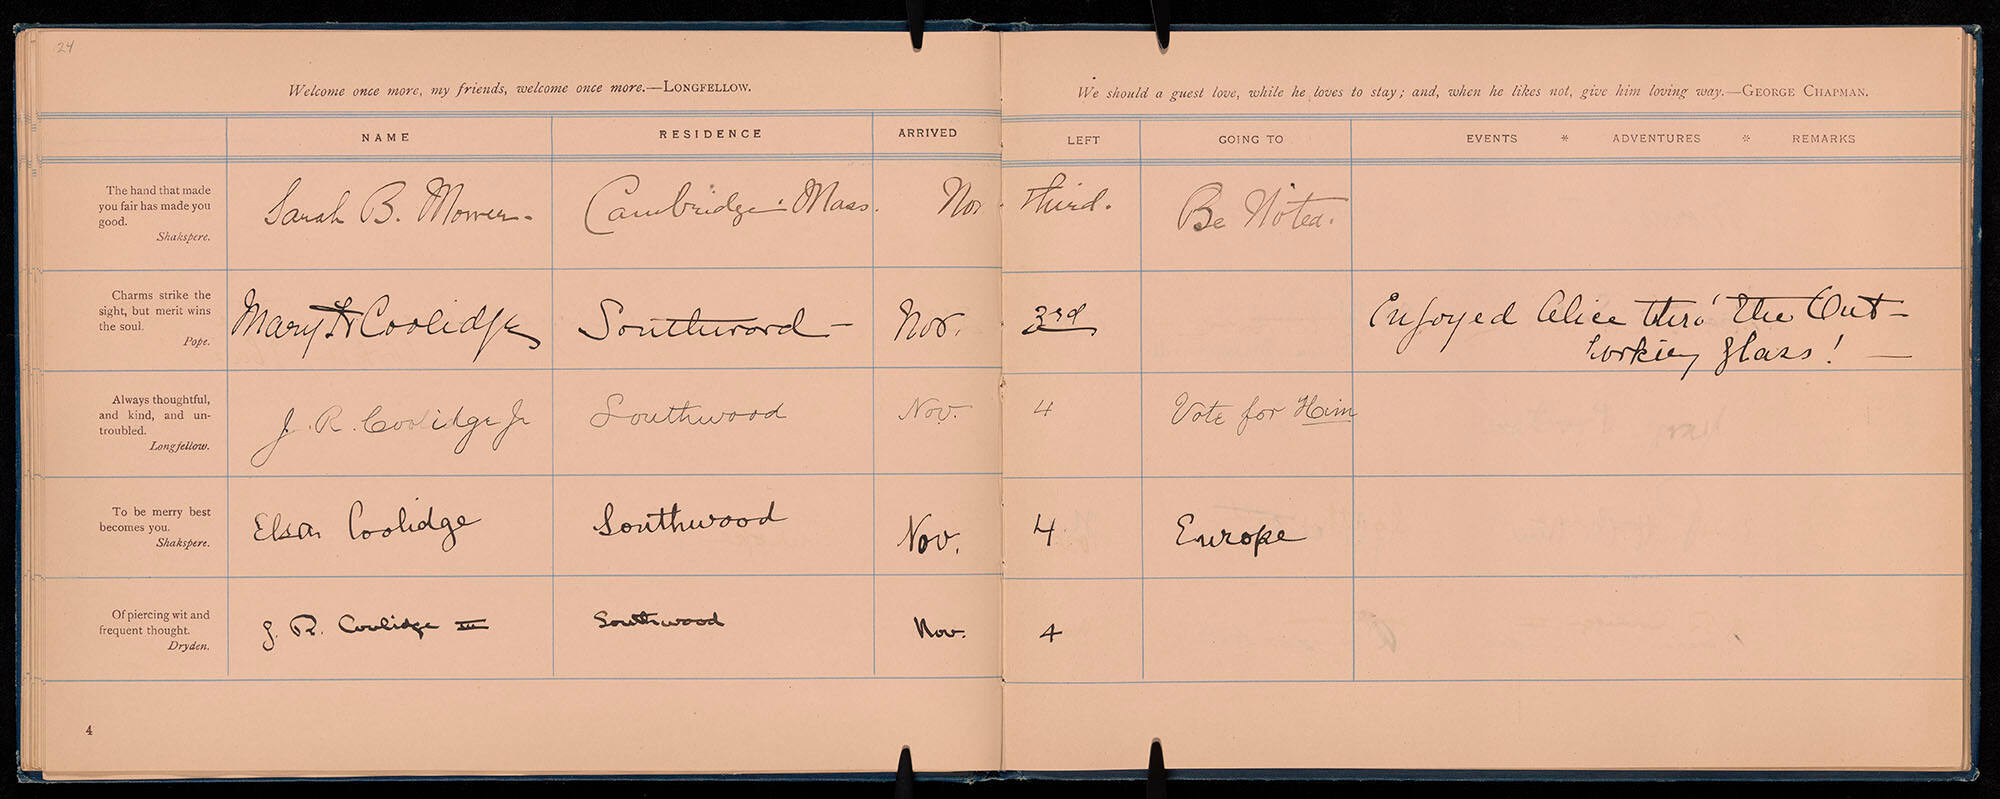 24
Welcome once more, my friends, welcome once more.—LONGFELLOW.
We should a guest love, while he loves to stay; and, when he likes not, give him loving way.—GEORGE CHAPMAN.
NAME RESIDENCE ARRIVED LEFT GOING TO EVENTS * ADVENTURES * REMARKS
The hand that made
you fair has made you
good.
Shakspere.
Sarah B. Mower. Cambridge. Mass. Nov. third. Be Noted.
Charms strike the
sight, but merit wins
the soul.
Pope.
Mary Coolidge Southwood — Nov. 3rd Enjoyed Alice thro' the Out-
Glass! —
Always thoughtful,
and kind, and un-
troubled.
Longfellow.
J. R. Coolidge Jr Southwood Nov. 4 Vote for Him
To be merry best
becomes you.
Shakspere.
Elsa Coolidge Southwood Nov. 4 Europe
Of piercing wit and
frequent thought.
Dryden.
J. R. Coolidge III Southwood Nov. 4
4